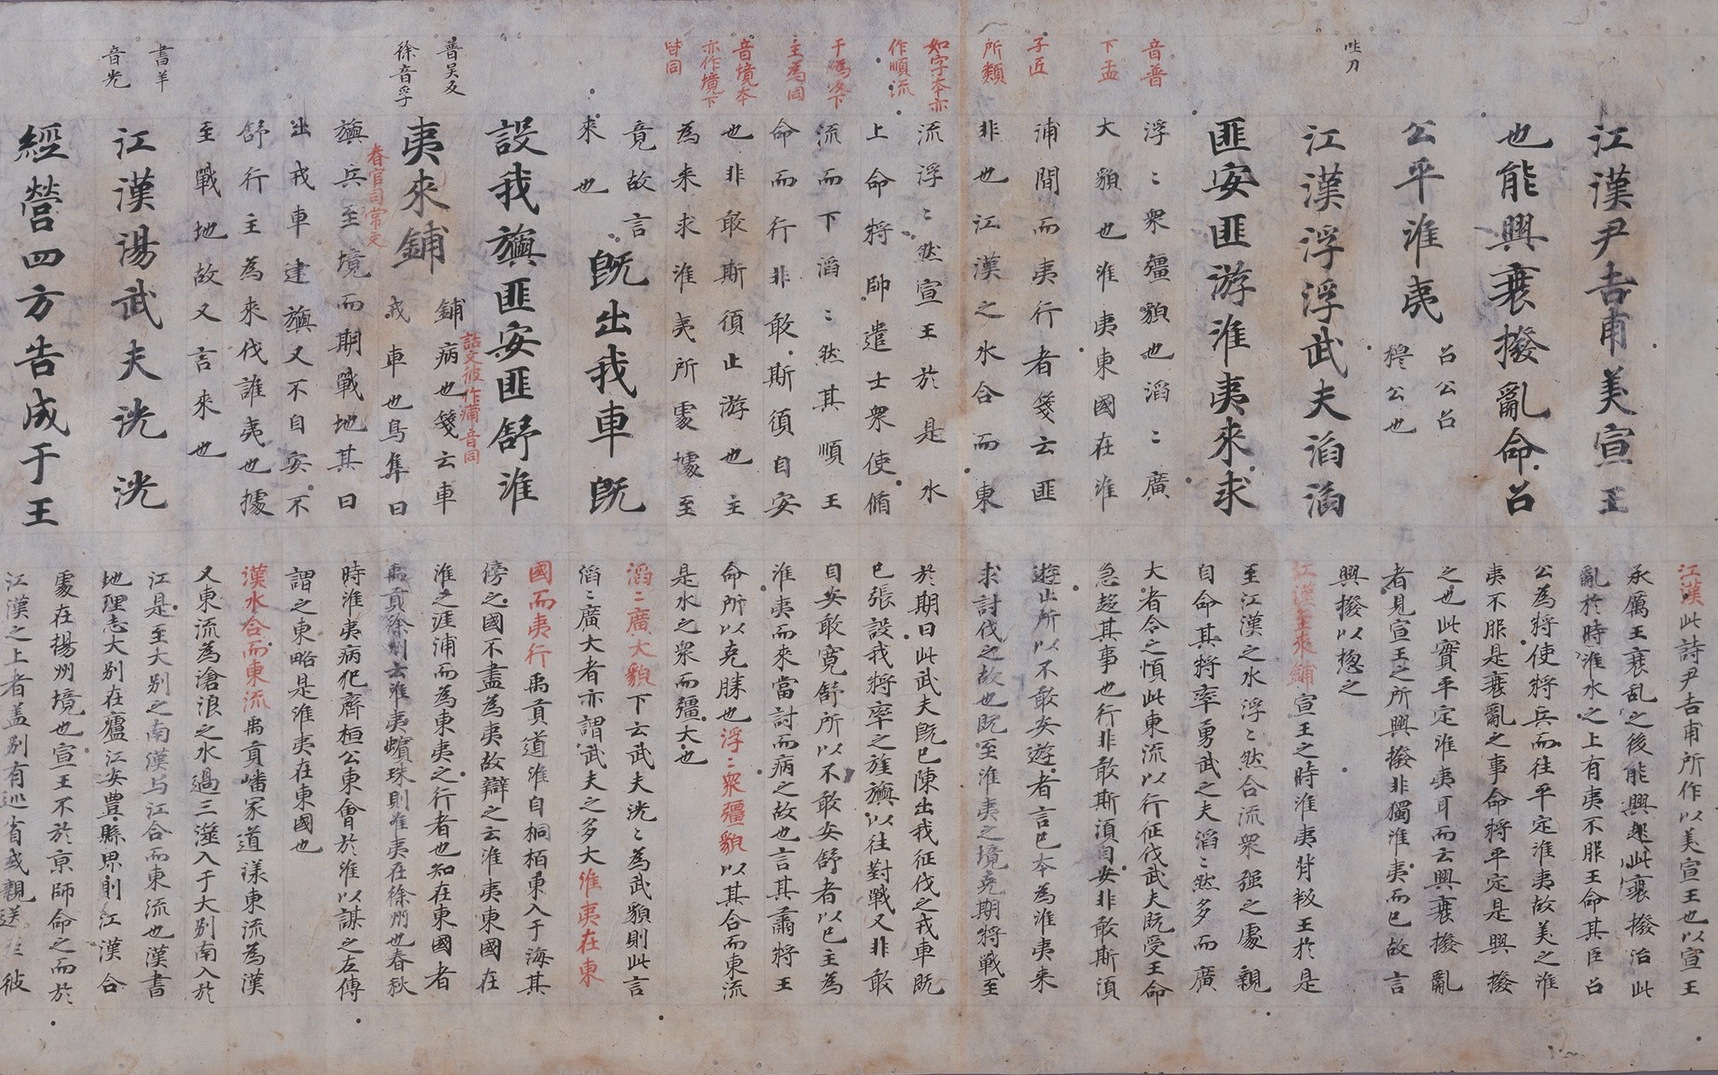 音普
下孟
子匠
所類
如字本亦
作順流
于為反下
主為同
音境本
亦作境下
皆同
普吴反
徐音孚
書羊
音光
江漢尹吉甫美宣王
也能興衰撥亂命召
公平淮夷
召公召
穆公也
江漢浮浮武夫滔滔
匪安匪游淮夷来求
浮〻衆彊貌也滔〻廣
大貌也淮夷東國在淮
浦間而夷行者箋云匪
非也江漢之水合而東
流浮〻然宣王於是水
上命将帥遣士衆使脩
流而下滔〻然其順王
命而行非敢斯須自安
也非敢斯須止游也主
為来求淮夷所處據至
竟故言
来也
既出我車既
設我旟匪安匪舒淮
夷来鋪
鋪病也箋云車
詁文彼作痡音同
戎車也鳥隼曰
春官司常文
旟兵至境而期戰地其日
出戎車建旟又不自安不
舒行主為来伐誰夷也據
至戰地故又言来也
江漢湯武夫洸洸
經營四方告成于王
江漢此詩尹吉甫所作以美宣王也以宣王
承厲王衰乱之後能興起此衰撥治此
亂於時淮水之上有夷不服王命其臣召
公為将使将兵而往平定淮夷故美之淮
夷不服是衰亂之事命将平定是興撥
之也此實平定淮夷耳而云興衰撥亂
者見宣王之所興撥非獨淮夷而已故言
興撥以揔之
江漢至来鋪宣王之時淮夷背叛王於是
至江漢之水浮〻然合流衆强之處親
自命其将率勇武之夫滔〻然多而廣
大者令之慎此東流以行征伐武夫既受王命
急趍其事也行非敢斯湏自安非敢斯湏
遊止所以不敢安遊者言已本為淮夷来
求討伐之故也既至淮夷之境克期将戰至
於期日此武夫既已陳出我征伐之戎車既
已張設我将率之旌旟以往對戰又非敢
自安敢寛舒所以不敢安舒者以已主為
淮夷而来當討而病之故也言其肅将王
命所以克勝也浮〻衆彊貌以其合而東流
是水之衆而彊大也
滔〻廣大貌下云武夫洸〻為武貌則此言
滔〻廣大者亦謂武夫之多大淮夷在東
國而夷行禹貢道淮自桐栢東入于海其
傍之國不盡為夷故辯之云淮夷東國在
淮之涯浦而為東夷之行者也知在東國者
禹貢徐州云淮夷蠙珠則淮夷在徐州也春秋
時淮夷病犯齊桓公東會於淮以謀之左傳
謂之東略是淮夷在東國也
漢水合而東流禹貢嶓冢道漾東流為漢
又東流為滄浪之水過三澨入于大别南入於
江是至大别之南漢与江合而東流也漢書
地理志大别在廬江安豊縣界則江漢合
處在揚州境也宣王不於京師命之而於
江漢之上者盖别有巡省或親送於彼